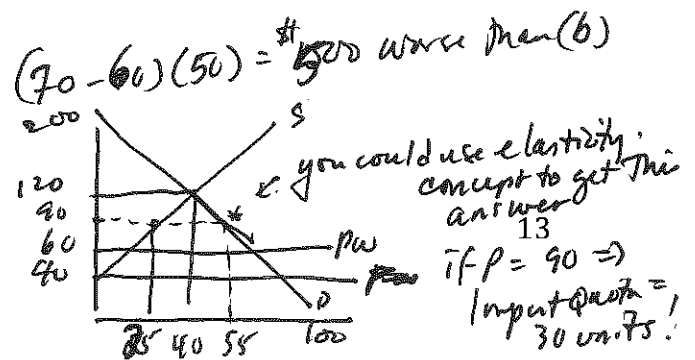 (70-60)(50) = $500 worse than (b)
200
S
you could use elasticity
concept to get this
answer
13
120
90
*
60
Pw
if P = 90 =>
40
Import Quota =
30 units!
D
25 40 55 100